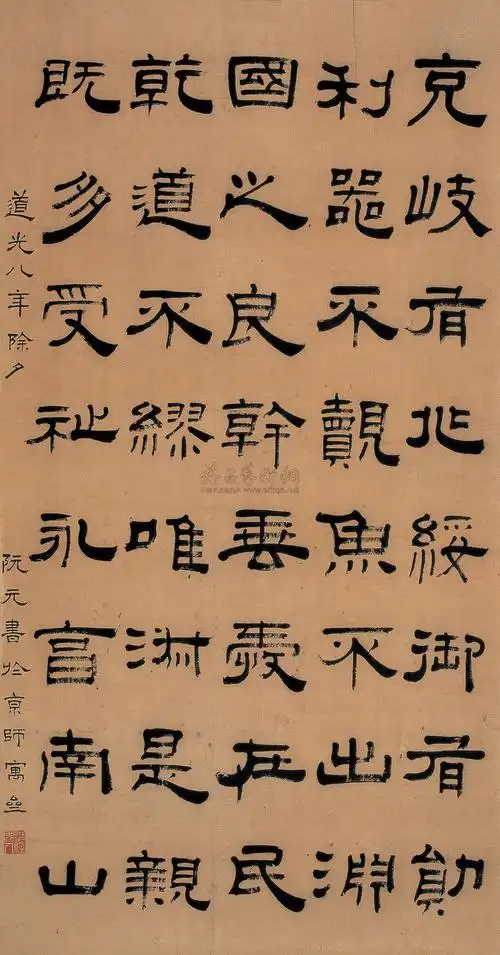 克岐有兆綏御有勛
利器不覿魚不出渊
國之良幹垂愛在民
乾道不繆唯淑是親
既多受祉永享南山
道光八年除夕
阮元書於京師寓